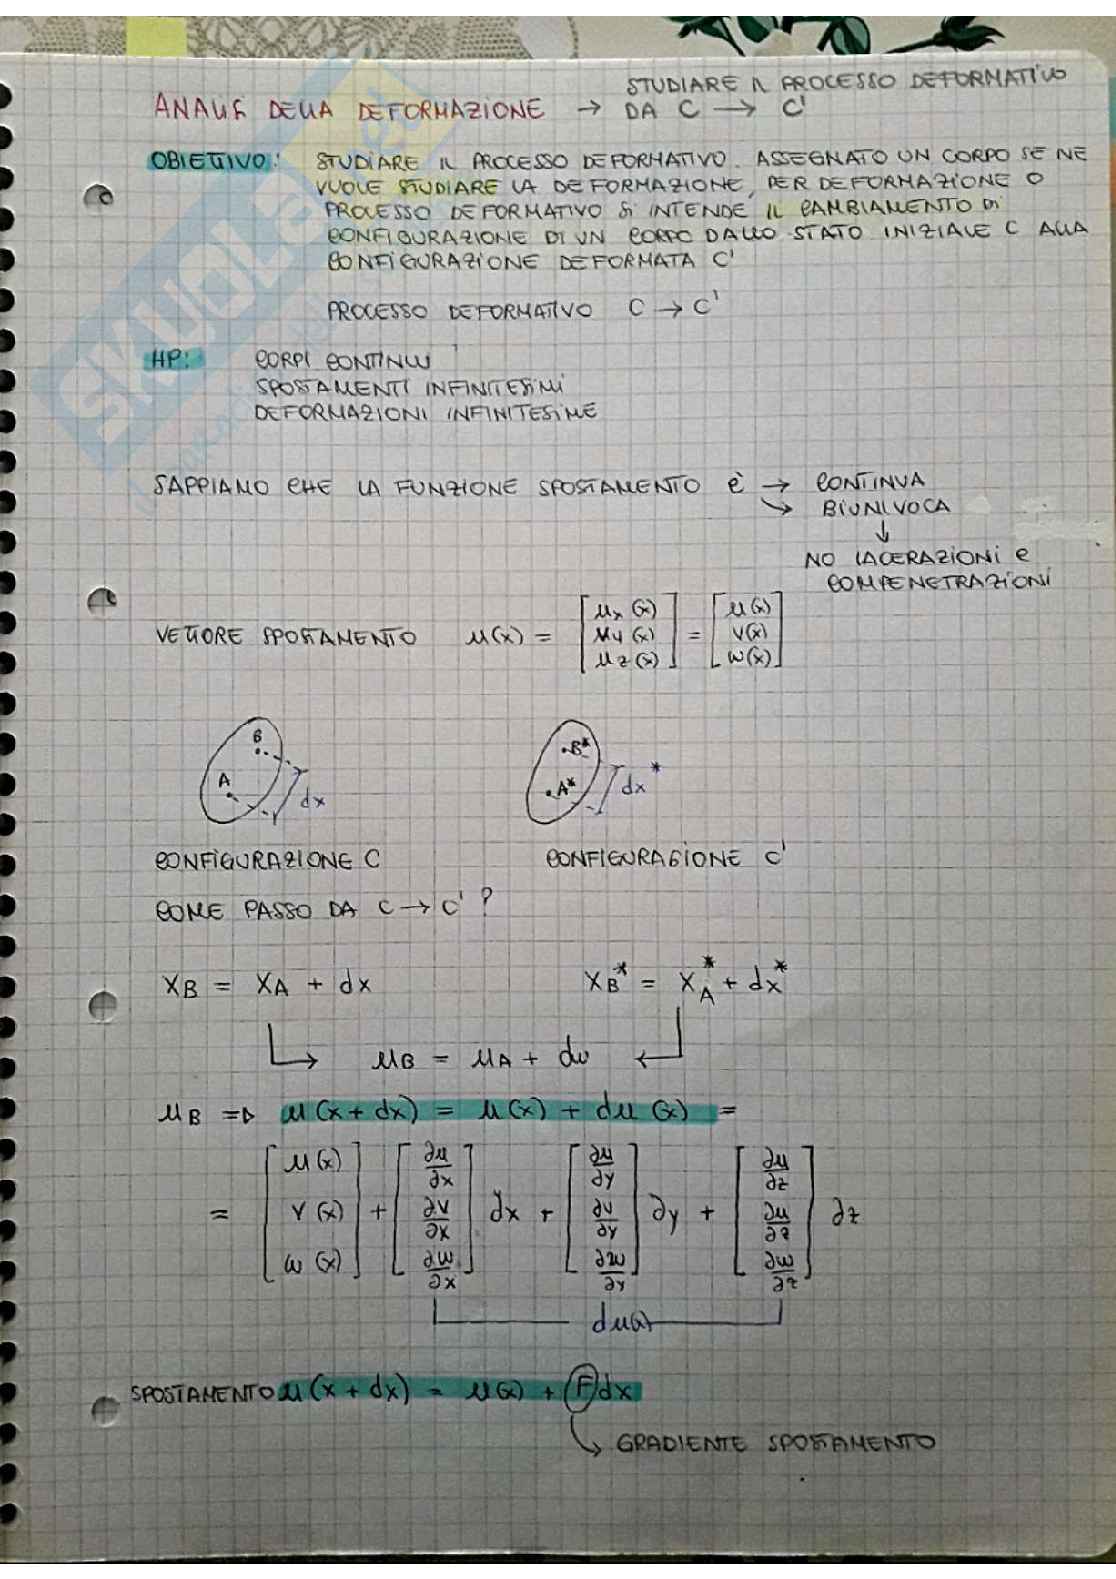 ANALISI DELLA DEFORMAZIONE → STUDIARE IL PROCESSO DEFORMATIVO
DA C → C'
OBIETTIVO: STUDIARE IL PROCESSO DEFORMATIVO. ASSEGNATO UN CORPO SE NE
VUOLE STUDIARE LA DEFORMAZIONE, PER DEFORMAZIONE O
PROCESSO DEFORMATIVO SI INTENDE IL CAMBIAMENTO DI
CONFIGURAZIONE DI UN CORPO DALLO STATO INIZIALE C ALLA
CONFIGURAZIONE DEFORMATA C'
PROCESSO DEFORMATIVO C → C'
HP: CORPI CONTINUI
SPOSTAMENTI INFINITESIMI
DEFORMAZIONI INFINITESIME
SAPPIAMO CHE LA FUNZIONE SPOSTAMENTO È → CONTINUA
↘ BIUNIVOCA
↓
NO LACERAZIONI e
COMPENETRAZIONI
VETTORE SPOSTAMENTO u(x) = [ux(x) uy(x) uz(x)] = [u(x) v(x) w(x)]
B
A
dx
B*
A*
dx*
CONFIGURAZIONE C CONFIGURAGIONE C'
COME PASSO DA C → C' ?
xB = xA + dx xB* = xA* + dx*
uB = uA + du
uB => u(x+dx) = u(x) + du(x) =
= [u(x) v(x) w(x)] + [∂u/∂x ∂v/∂x ∂w/∂x] ∂x + [∂u/∂y ∂v/∂y ∂w/∂y] ∂y + [∂u/∂z ∂u/∂z ∂w/∂z] ∂z
du(x)
SPOSTAMENTO u(x+dx) = u(x) + F dx
↳ GRADIENTE SPOSTAMENTO
SKUOLA